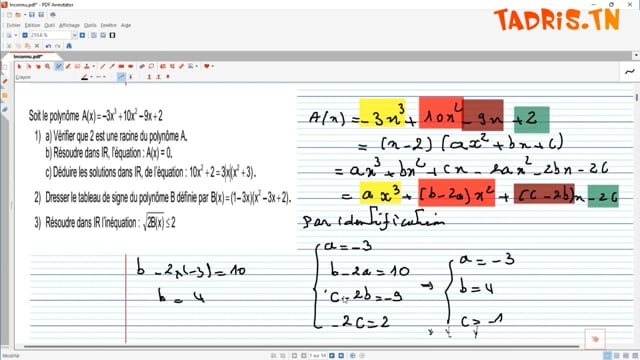 Inconnu.pdf* - PDF Annotator
TADRIS.TN
Fichier Edition Affichage Insertion Document Outils Fenêtre Aide
Inconnu.pdf*
Crayon
Soit le polynôme A(x)=-3x³+10x²-9x+2
1) a) Vérifier que 2 est une racine du polynôme A.
b) Résoudre dans IR, l'équation : A(x)=0,
c) Déduire les solutions dans IR, de l'équation : 10x²+2=3|x|(x²+3).
2) Dresser le tableau de signe du polynôme B définie par B(x)=(1-3x)(x²-3x+2).
3) Résoudre dans IR l'inéquation : √2B(x) ≤ 2
A(x) = -3x³ + 10x² - 9x + 2
= (x-2) (ax² + bx + c)
= ax³ + bx² + cx - 2ax² - 2bx - 2c
= ax³ + (b-2a)x² + (c-2b)x - 2c
par identification
a = -3
b - 2a = 10
c - 2b = -9
-2c = 2
→
a = -3
b = 4
c = -1
b - 2×(-3) = 10
b = 4
1 sur 14